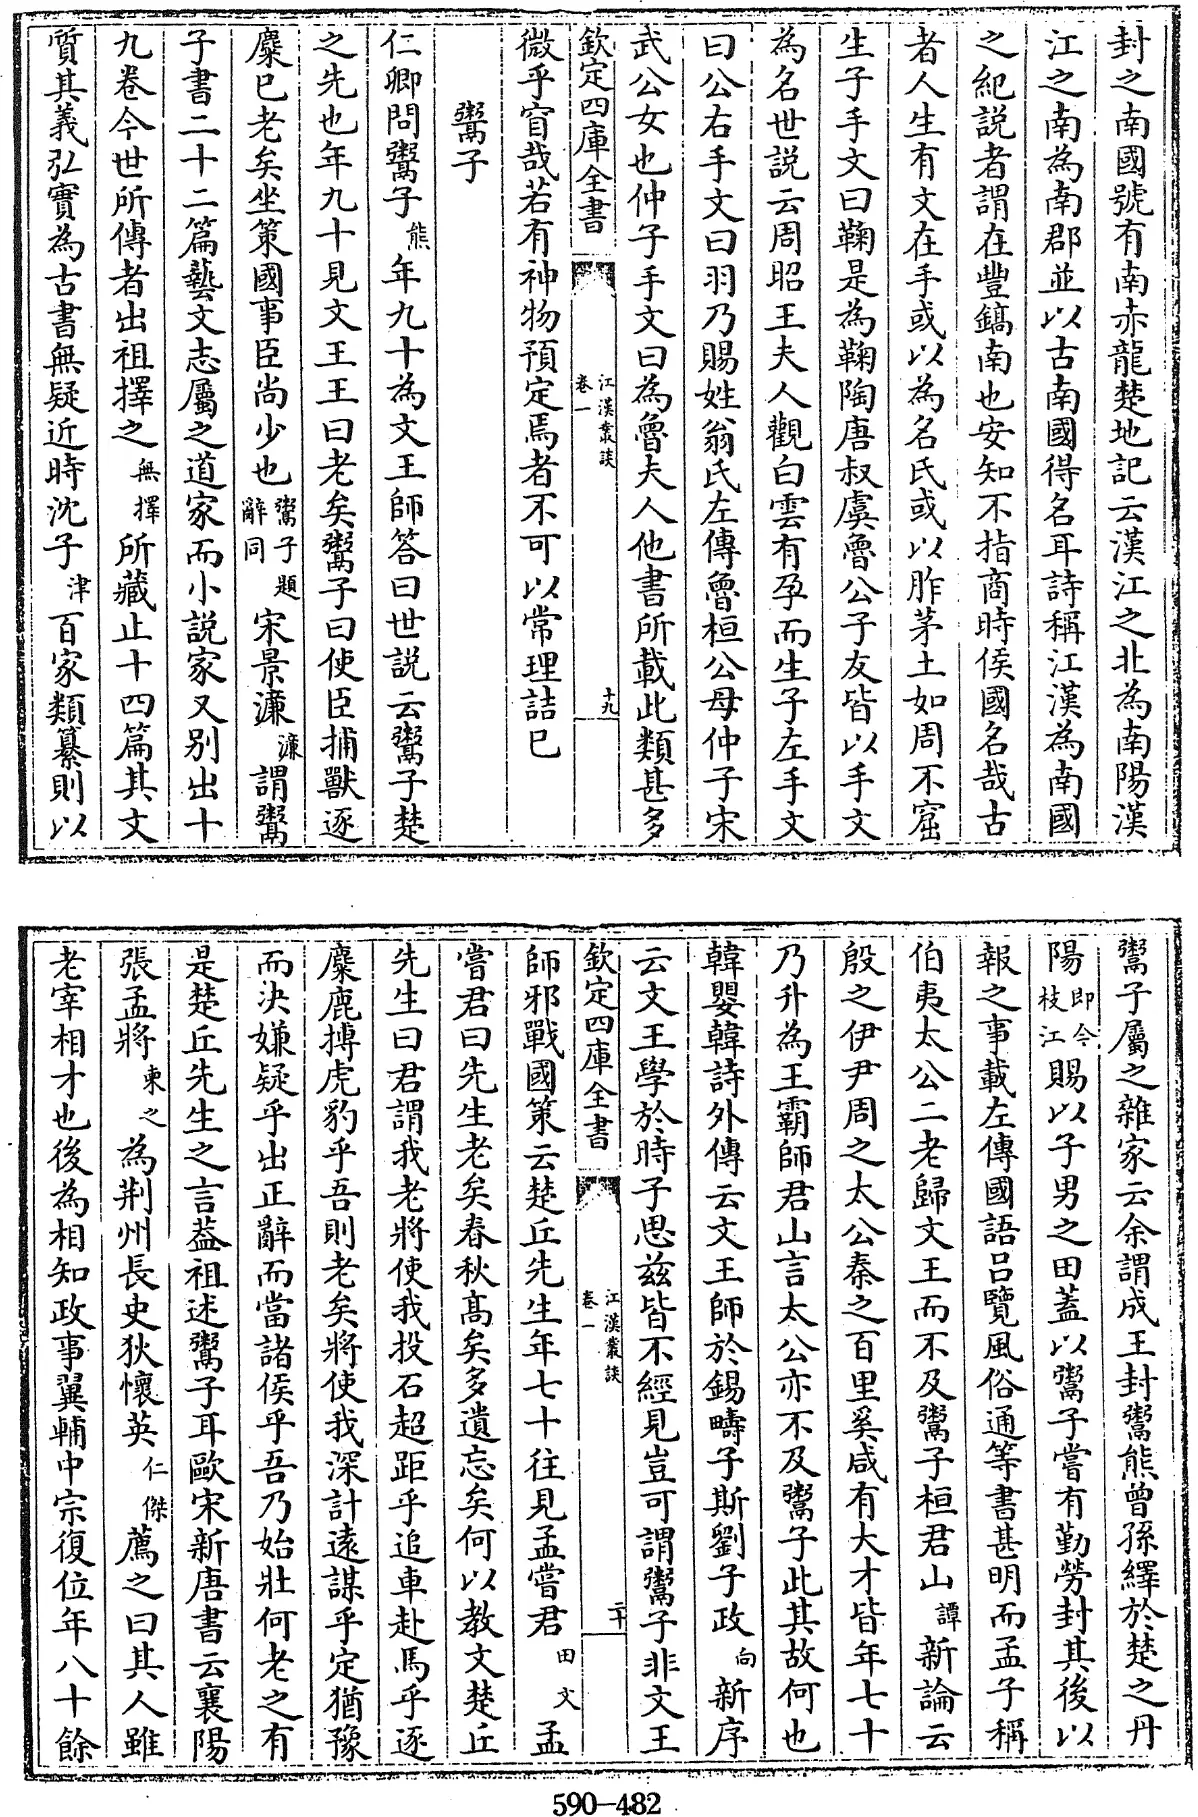 封之南國號有南赤龍楚地記云漢江之北為南陽漢
江之南為南郡並以古南國得名耳詩稱江漢為南國
之紀説者謂在豐鎬南也安知不指商時侯國名哉古
者人生有文在手或以為名氏或以胙茅土如周不窋
生子手文曰鞠是為鞠陶唐叔虞魯公子友皆以手文
為名世説云周昭王夫人觀白雲有孕而生子左手文
曰公右手文曰羽乃賜姓翁氏左傳魯桓公母仲子宋
武公女也仲子手文曰為魯夫人他書所載此類甚多
欽定四庫全書
江漢叢談
卷一
十九
微乎窅哉若有神物預定焉者不可以常理詰已
鬻子
仁卿問鬻子熊年九十為文王師答曰世説云鬻子楚
之先也年九十見文王王曰老矣鬻子曰使臣捕獸逐
麋已老矣坐策國事臣尚少也鬻子題辭同宋景濂濂謂鬻
子書二十二篇藝文志屬之道家而小説家又别出十
九卷今世所傳者出祖擇之無擇所藏止十四篇其文
質其義弘實為古書無疑近時沈子津百家類纂則以
鬻子屬之雜家云余謂成王封鬻熊曾孫繹於楚之丹
陽即今枝江賜以子男之田蓋以鬻子嘗有勤勞封其後以
報之事載左傳國語吕覽風俗通等書甚明而孟子稱
伯夷太公二老歸文王而不及鬻子桓君山譚新論云
殷之伊尹周之太公秦之百里奚咸有大才皆年七十
乃升為王霸師君山言太公亦不及鬻子此其故何也
韓嬰韓詩外傳云文王師於錫疇子斯劉子政向新序
云文王學於時子思兹皆不經見豈可謂鬻子非文王
欽定四庫全書
江漢叢談
卷一
二十
師邪戰國策云楚丘先生年七十往見孟嘗君田文孟
嘗君曰先生老矣春秋高矣多遺忘矣何以教文楚丘
先生曰君謂我老將使我投石超距乎追車赴馬乎逐
麋鹿搏虎豹乎吾則老矣將使我深計遠謀乎定猶豫
而決嫌疑乎出正辭而當諸侯乎吾乃始壯何老之有
是楚丘先生之言蓋祖述鬻子耳歐宋新唐書云襄陽
張孟將柬之為荆州長史狄懷英仁傑薦之曰其人雖
老宰相才也後為相知政事翼輔中宗復位年八十餘
590-482